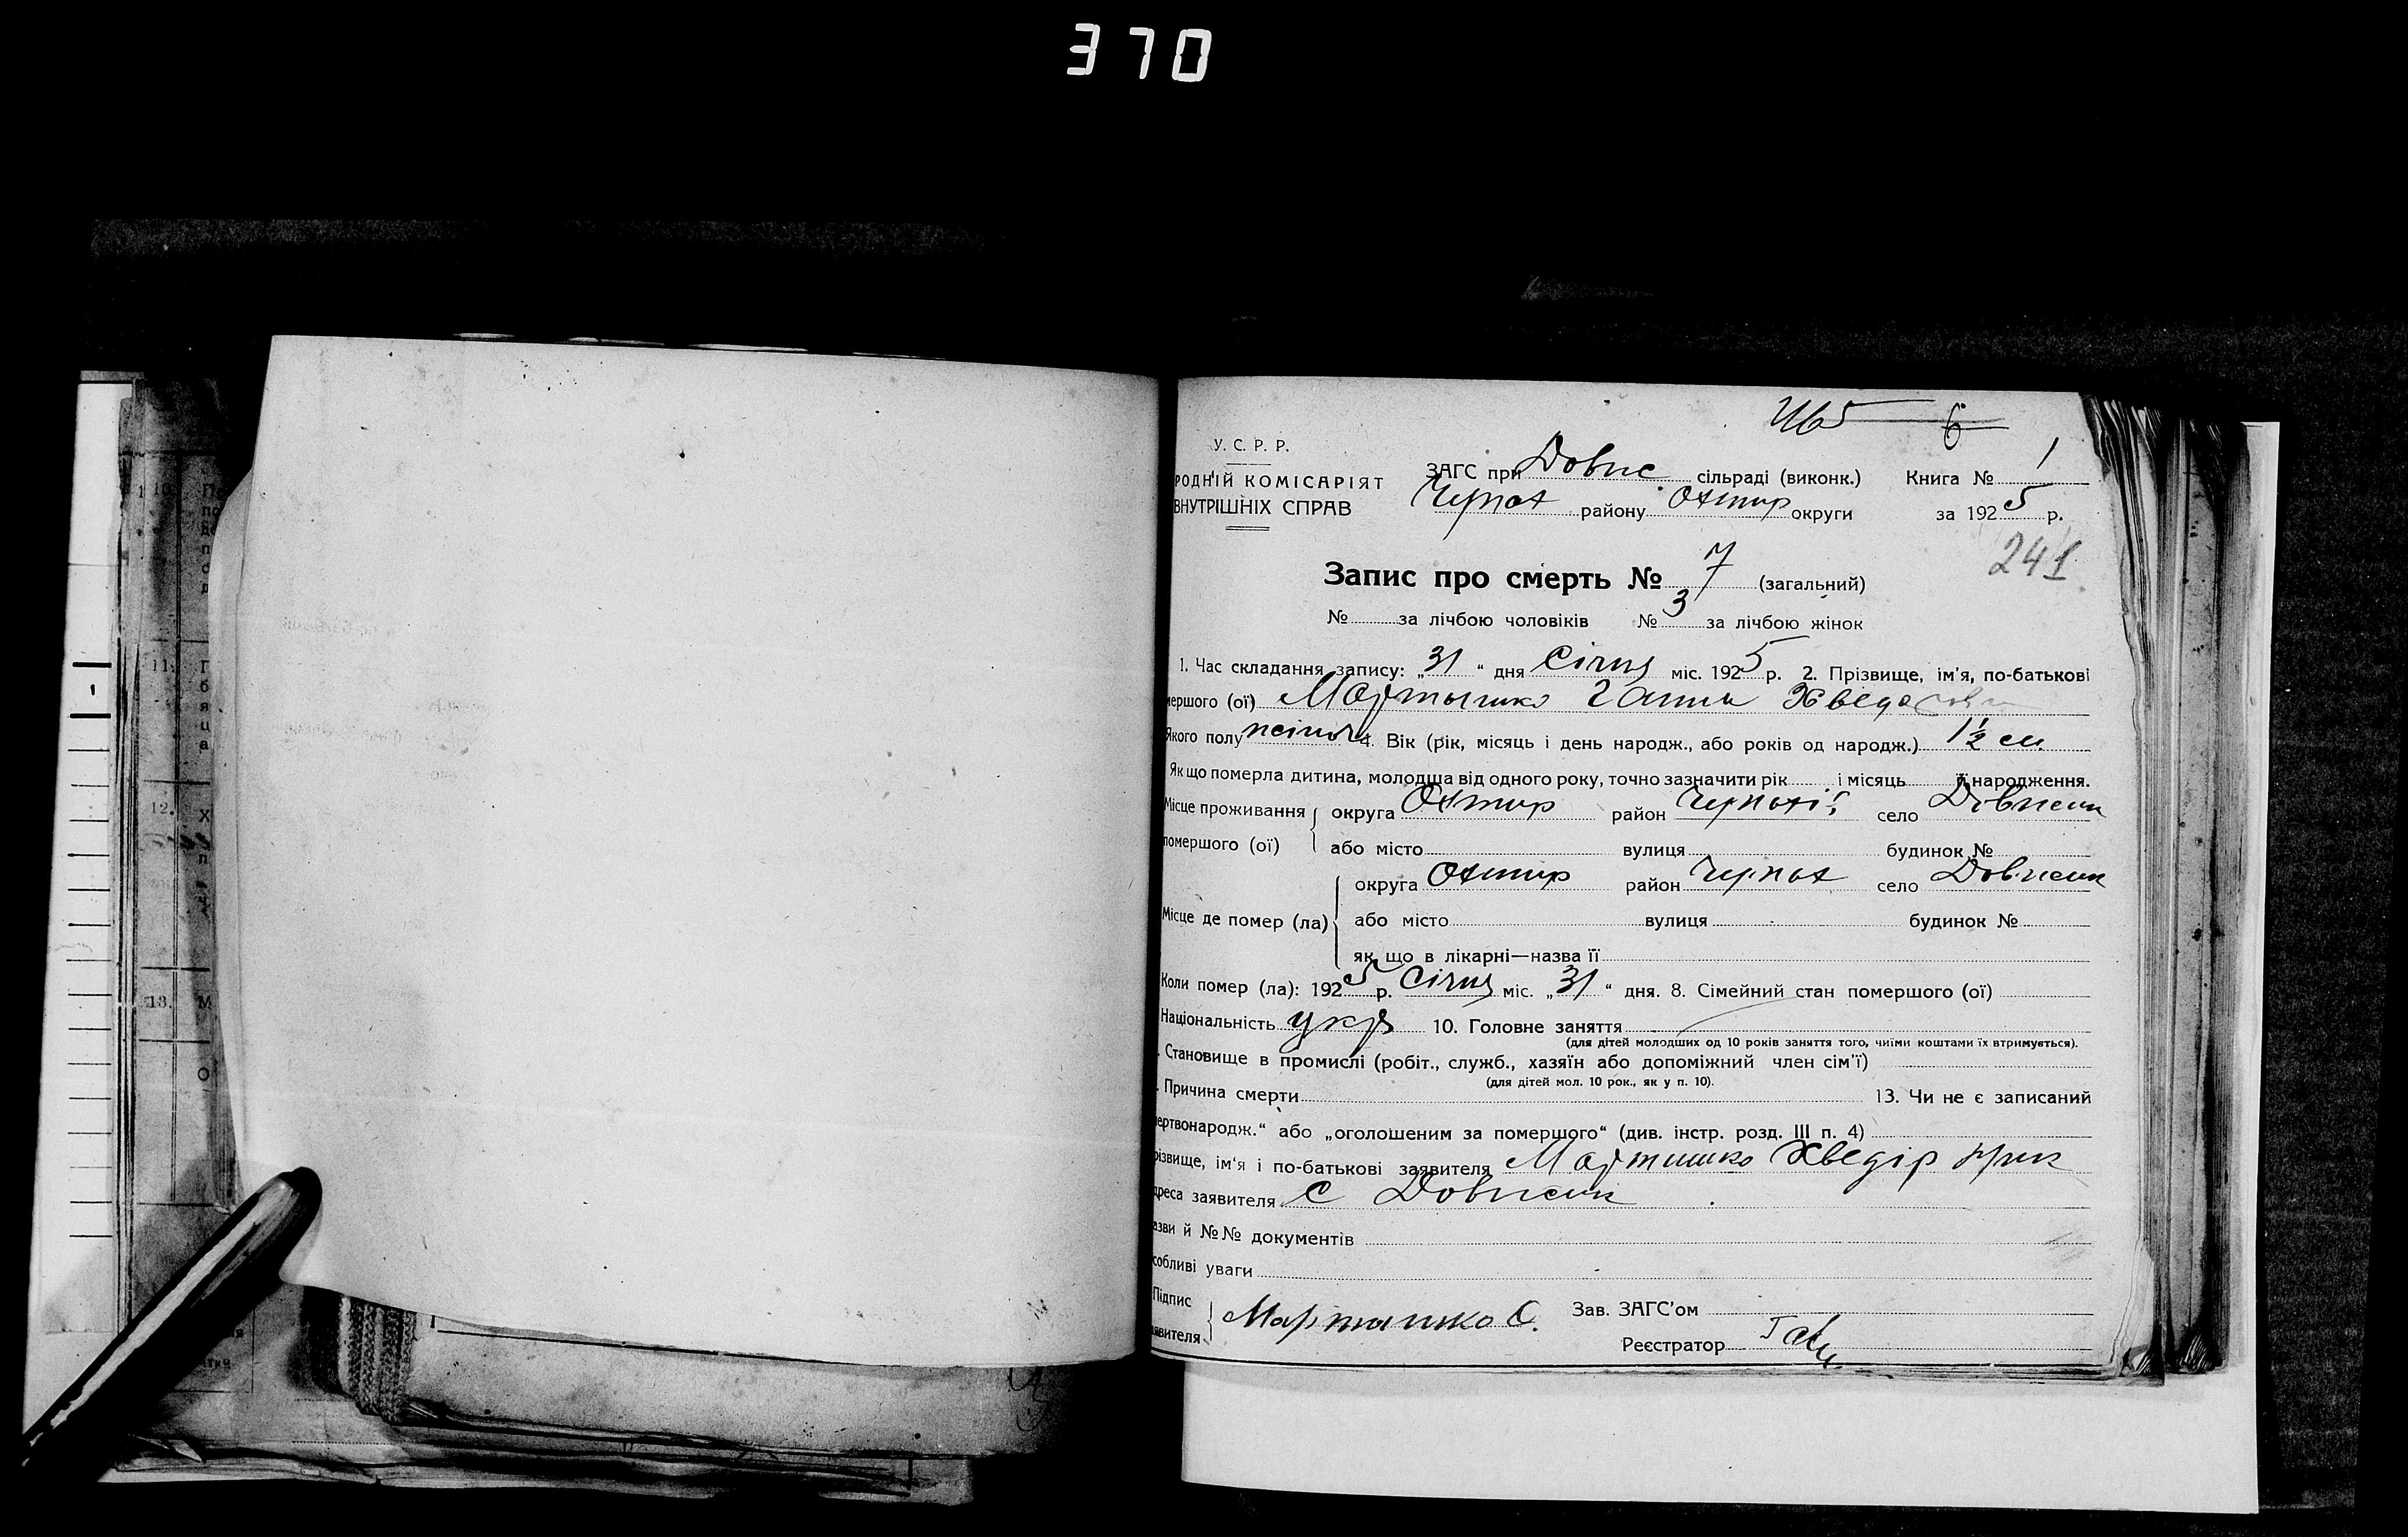 370
6
У. С. Р. Р.
РОДНІЙ КОМІСАРІЯТ
ВНУТРІШНІХ СПРАВ
ЗАГС при Довпс сільраді (виконк.) Книга № 1
району Охтир округи за 1925 р.
241
Запис про смерть № 7 (загальний)
№ за лічбою чоловіків № 3 за лічбою жінок
1. Час складання запису: „31“ дня Січня міс. 1925 р. 2. Прізвище, ім'я, по-батькові
мершого (ої) Мартышко Ганна
Якого полу 4. Вік (рік, місяць і день народж., або років од народж.) 1½
Як що померла дитина, молодша від одного року, точно зазначити рік і місяць її народження.
Місце проживання округа Охтир район село
помершого (ої) або місто вулиця будинок №
округа Охтир район село
Місце де помер (ла) або місто вулиця будинок №
як що в лікарні—назва її
Коли помер (ла): 1925 р. Січня міс. „31“ дня. 8. Сімейний стан помершого (ої)
Національність укр 10. Головне заняття
(для дітей молодших од 10 років заняття того, чиїми коштами їх втримується).
Становище в промислі (робіт., служб., хазяїн або допоміжний член сім'ї)
(для дітей мол. 10 рок., як у п. 10).
Причина смерти 13. Чи не є записаний
ертвонародж.“ або „оголошеним за помершого“ (див. інстр. розд. III п. 4)
різвище, ім'я і по-батькові заявителя Мартишко Хведір
дреса заявителя с
азви й №№ документів
собливі уваги
Підпис
явителя Мартишко Зав. ЗАГС'ом
Реєстратор
10.
11.
12.
13.